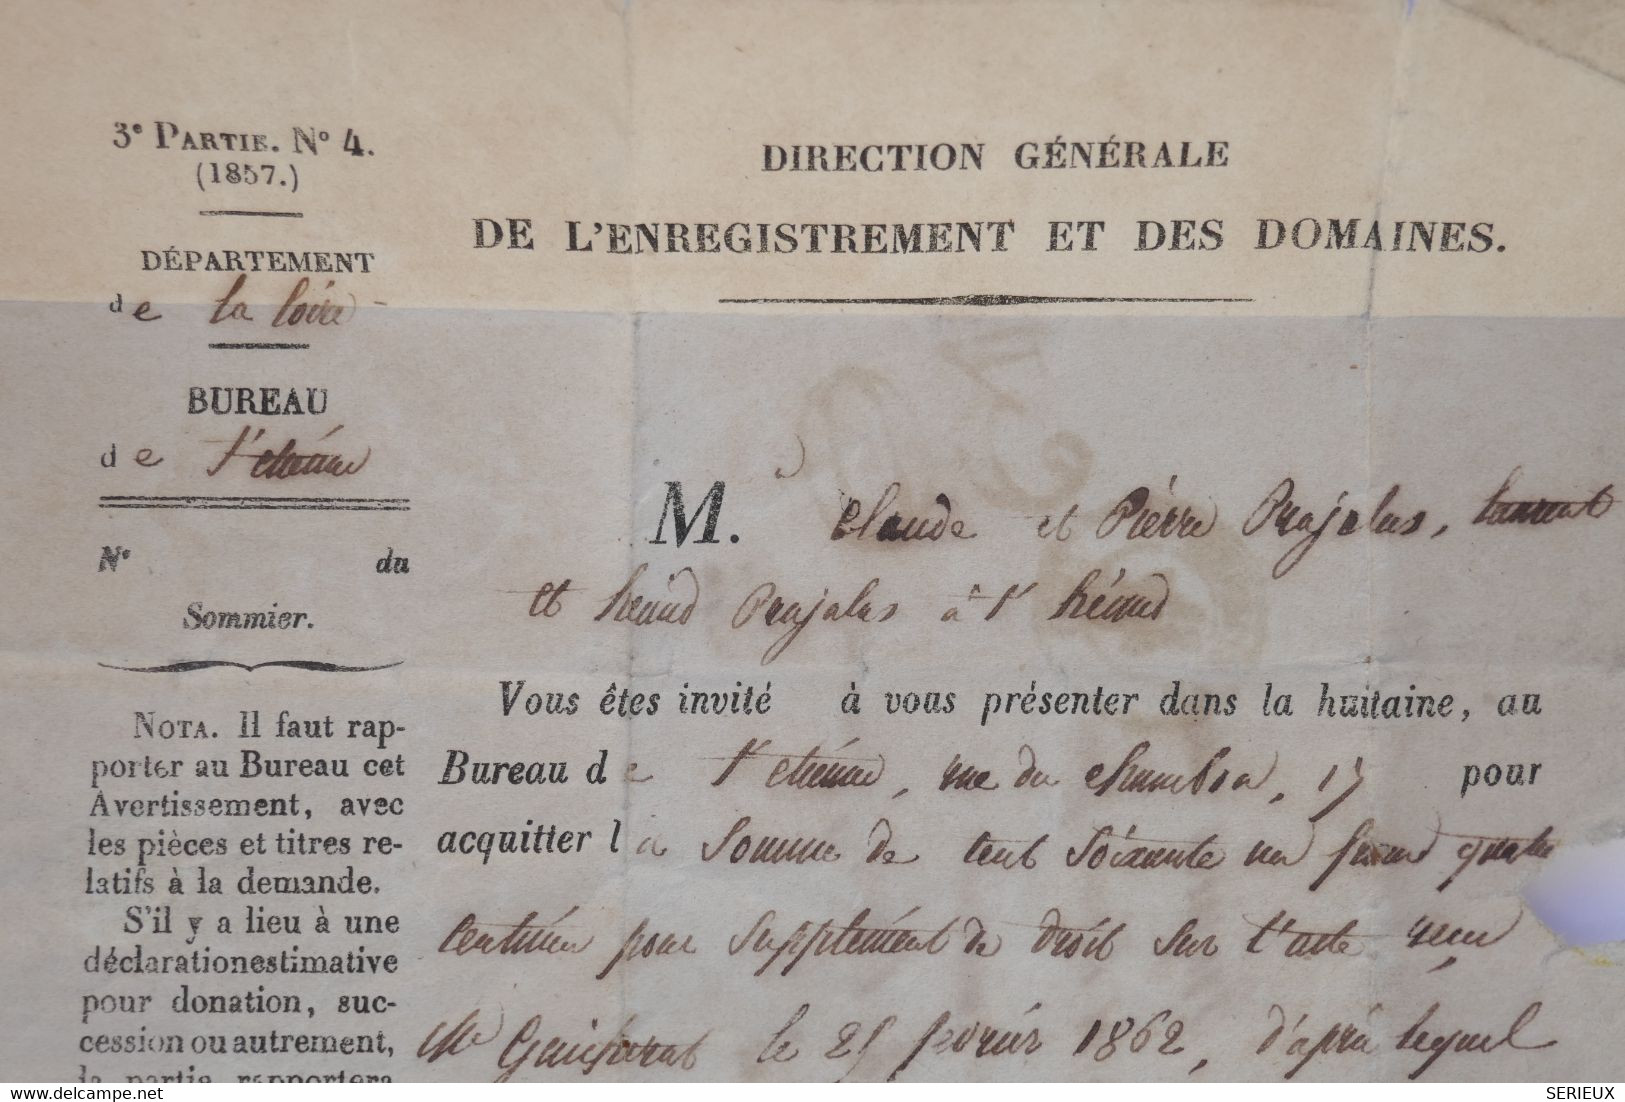 3e PARTIE. No 4.
(1857.)
DÉPARTEMENT
de la Loire
BUREAU
de St Etienne
No du
Sommier.
NOTA. Il faut rap-
porter au Bureau cet
Avertissement, avec
les pièces et titres re-
latifs à la demande.
S'il y a lieu à une
déclaration estimative
pour donation, suc-
cession ou autrement,
la partie rapportera
DIRECTION GÉNÉRALE
DE L'ENREGISTREMENT ET DES DOMAINES.
M. Claude et Pierre Prajalas, Laurent
et héand Prajalas à St héand
Vous êtes invité à vous présenter dans la huitaine, au
Bureau de St Etienne, rue du Chambon, 15 pour
acquitter la Somme de Cent Soixante un francs quatre
Centimes pour Supplément de droit Sur l'acte reçu
Me le 25 février 1862, d'après lequel
SERIEUX
delcampe.net